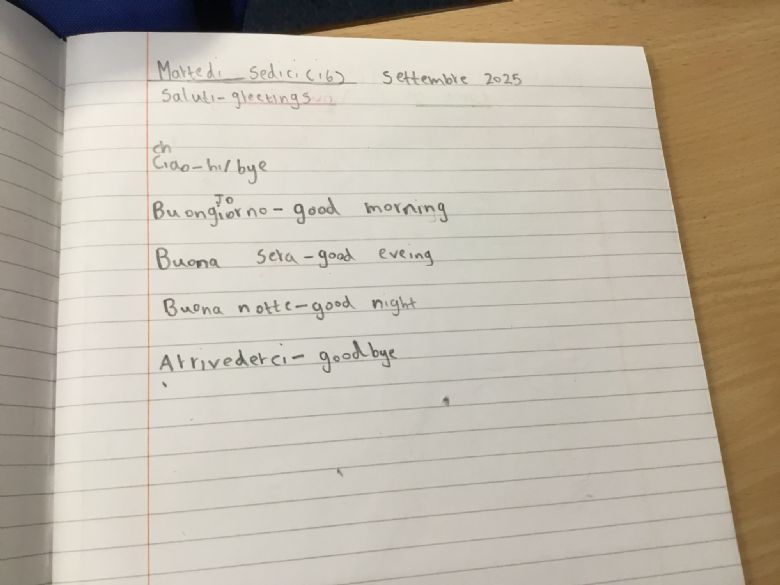 Martedi Sedici (16) Settembre 2025
Saluti-greetings
ch
Ciao-hi/bye
Jo
Buongiorno-good morning
Buona sera-good eveing
Buona notte-good night
Arrivederci-goodbye